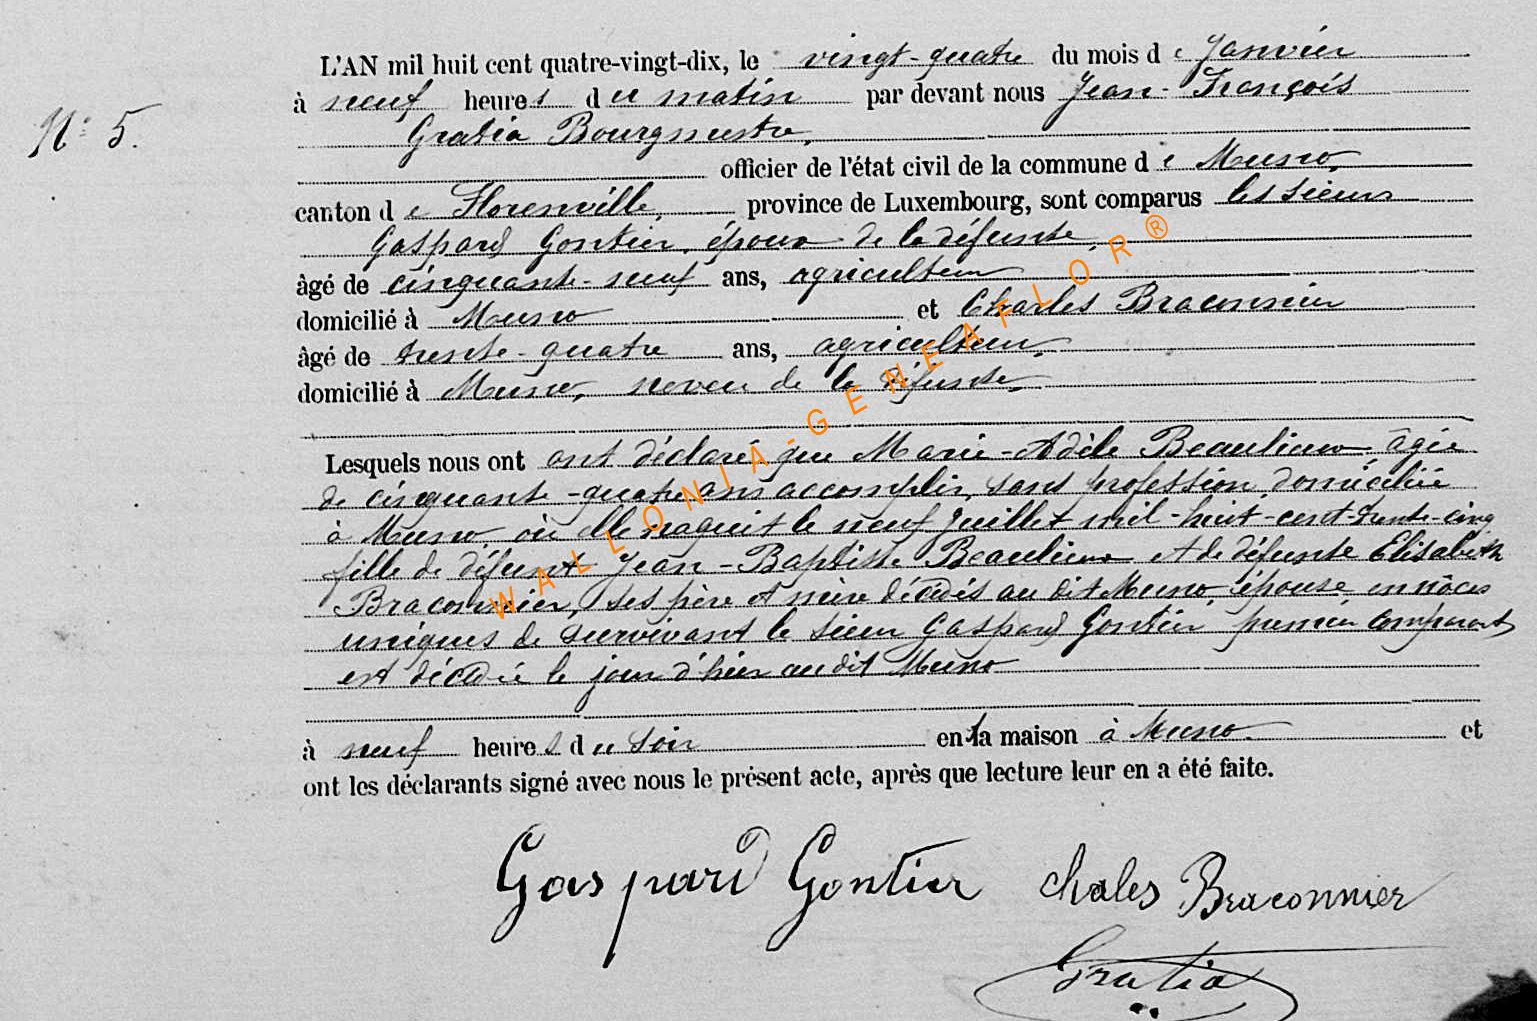 L'AN mil huit cent quatre-vingt-dix, le vingt-quatre du mois de Janvier
N° 5.
à neuf heures du matin par devant nous Jean-François
Gratia Bourgmestre,
officier de l'état civil de la commune de Muno,
canton de Florenville, province de Luxembourg, sont comparus les sieurs
Gaspard Gontier, époux de la défunte,
âgé de cinquante-neuf ans, agriculteur
domicilié à Muno et Charles Braconnier
âgé de trente-quatre ans, agriculteur,
domicilié à Muno, neveu de la défunte,
Lesquels nous ont ont déclaré que Marie-Adèle Beaulieux âgée
de cinquante-quatre ans accomplis, sans profession, domiciliée
à Muno où elle naquit le neuf Juillet mil-huit-cent-trente-cinq
fille de défunt Jean-Baptiste Beaulieux et de défunte Elisabeth
Braconnier, ses père et mère décédés au dit Muno, épouse en nôces
uniques de survivant le sieur Gaspard Gontier premier comparant
est décédée le jour d'hier au dit Muno
à neuf heures du soir en la maison à Muno. et
ont les déclarants signé avec nous le présent acte, après que lecture leur en a été faite.
Gaspard Gontier Chales Braconnier
Gratia
WALLONIA-GENEAFLOR®